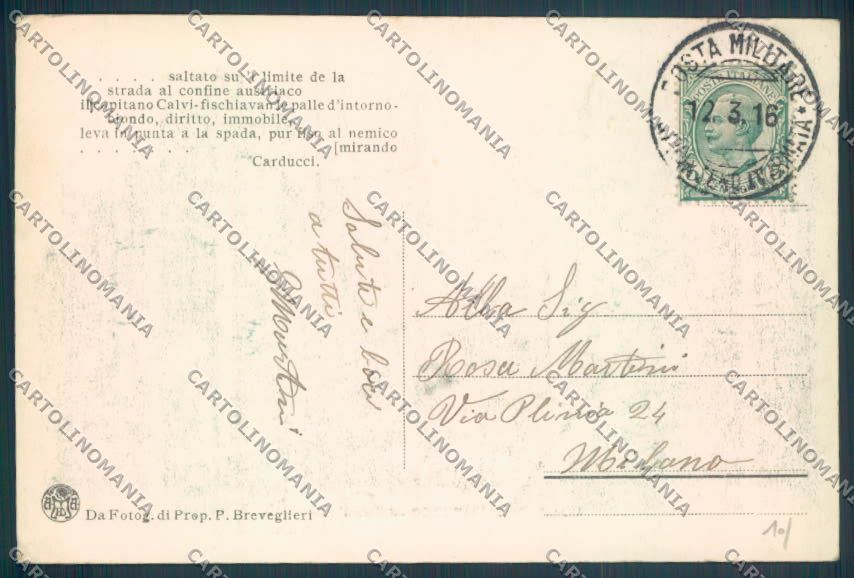 . . . . . saltato su 'l limite de la
strada al confine austriaco
il capitano Calvi-fischiavan le palle d'intorno-
biondo, diritto, immobile,
leva in punta a la spada, pur fiso al nemico
. . . . . . . . . . [mirando
Carducci.
Salute e baci
a tutti
Martini
POSTA MILITARE
12.3.16
POSTE ITALIANE
Alla Sig
Rosa Martini
Via Plinio 24
Milano
Da Fotog. di Prop. P. Breveglieri
10/
CARTOLINOMANIA